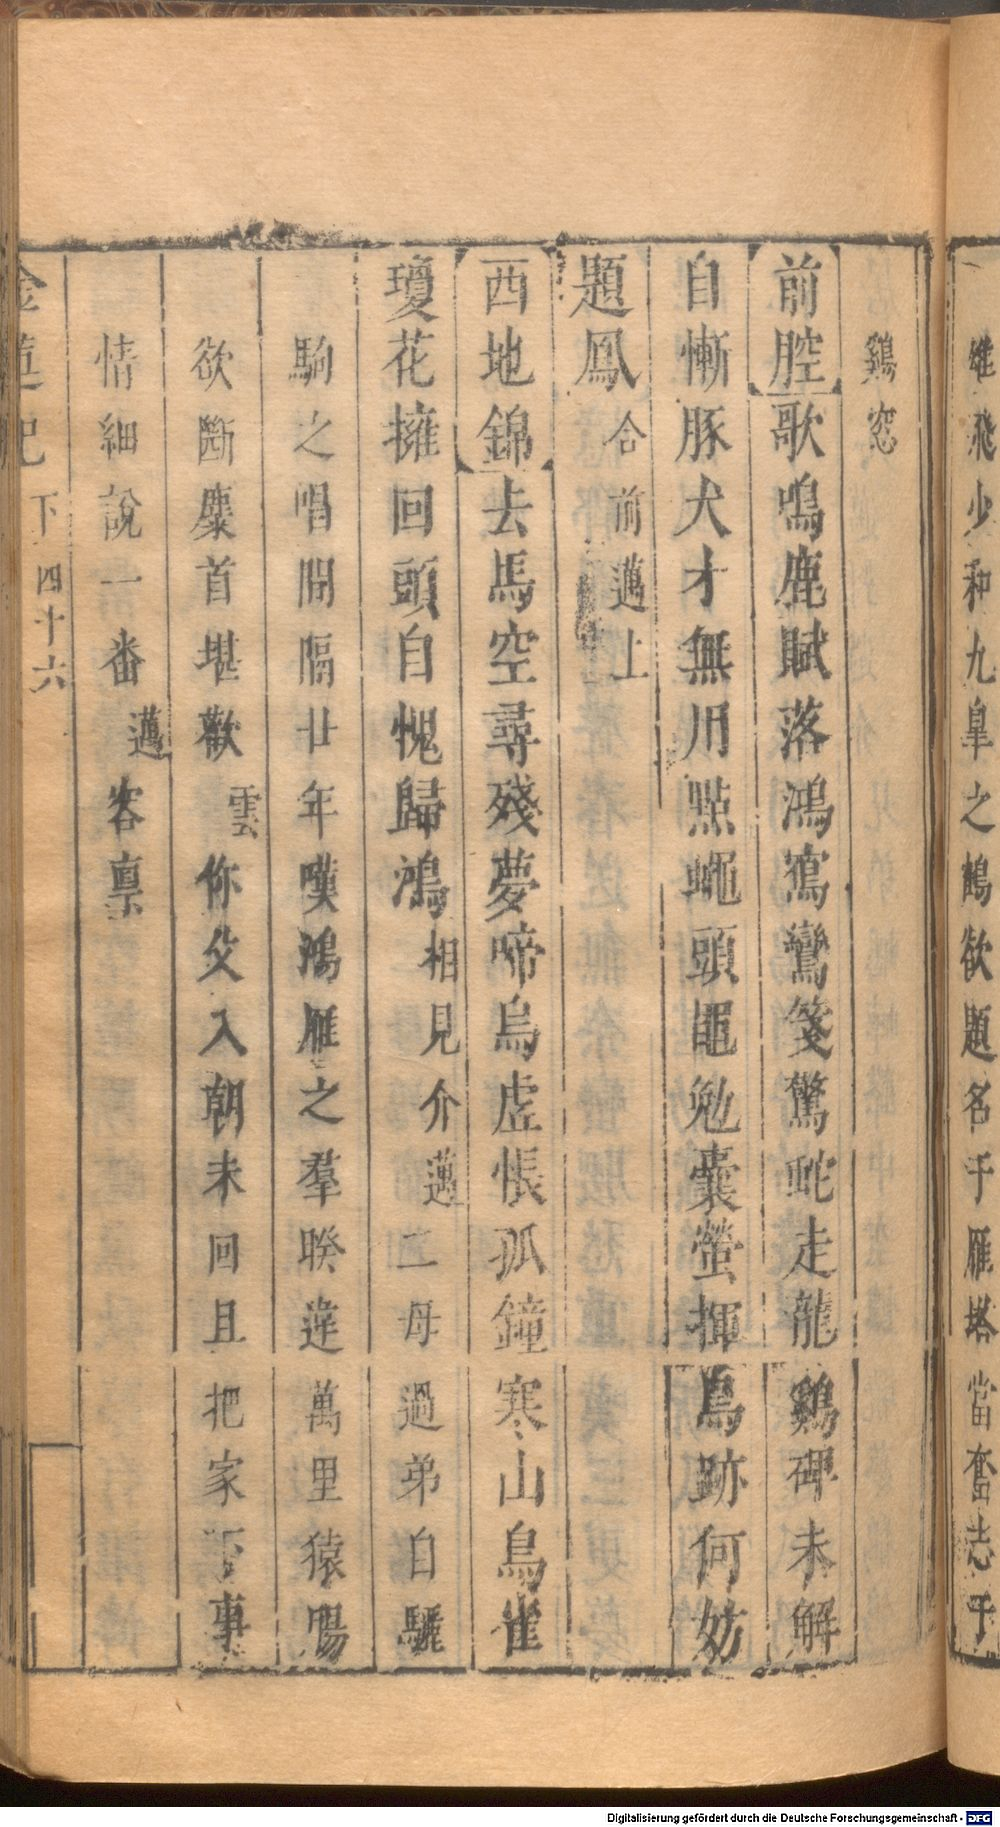 雄飛少和九臯之鶴欲題名于雁塔當奮志于
鷄窓
前腔歌鳴鹿賦落鴻寫鸞箋驚蛇走龍鷄碑未解
自慚豚犬才無用點蠅頭黽勉囊螢揮烏跡何妨
題鳳合前邁上
西地錦去馬空尋殘夢啼烏虛悵孤鐘寒山鳥雀
瓊花擁回頭自愧歸鴻相見介邁二母過弟自驪
駒之唱間隔廿年嘆鴻雁之羣暌違萬里猿腸
欲斷麋首堪歡雲你父入朝未回且把家下事
情細說一番邁容禀
金蓮記
下
四十六
Digitalisierung gefördert durch die Deutsche Forschungsgemeinschaft - DFG